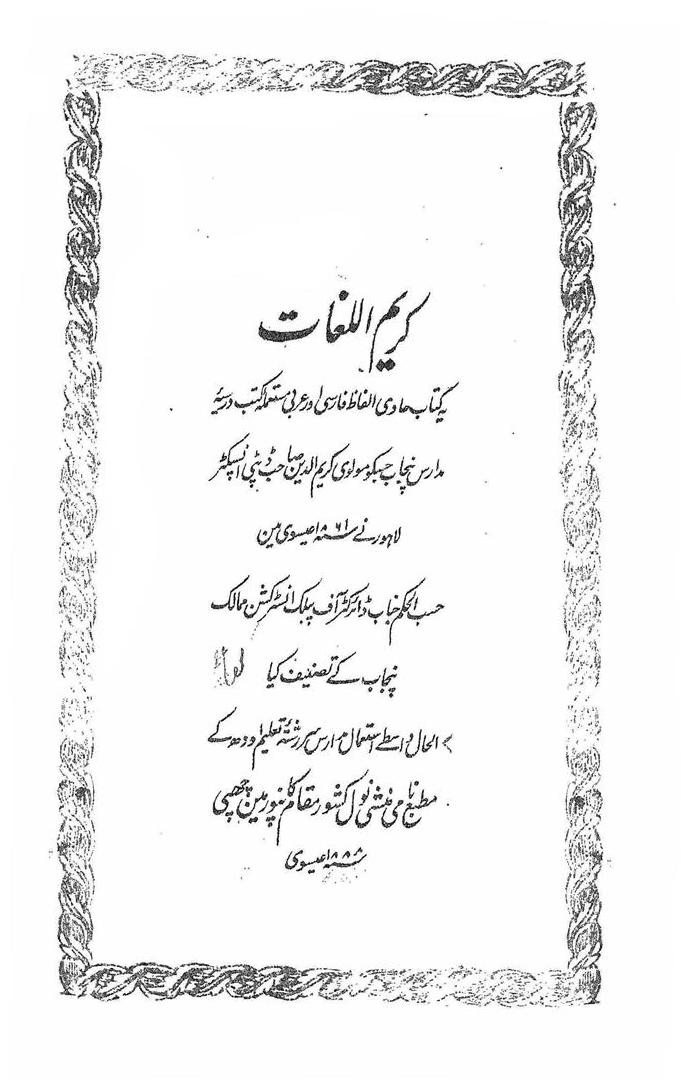 کریم اللغات
یہ کتاب حاوی الفاظ فارسی اور عربی مستعملہ کتب درسیہ
مدارس پنجاب جسکو مولوی کریم الدین صاحب ڈپٹی انسپکٹر
لاہور نے ۱۸۶۱ عیسوی مین
حسب الحکم جناب ڈائرکٹر آف پبلک انسٹرکشن ممالک
پنجاب کے تصنیف کیا
الحال واسطے استعمال مدارس سررشتۂ تعلیم اودھ کے
مطبع نامی منشی نول کشور مقام کانپور مین چھپی
۱۸۸۸ عیسوی